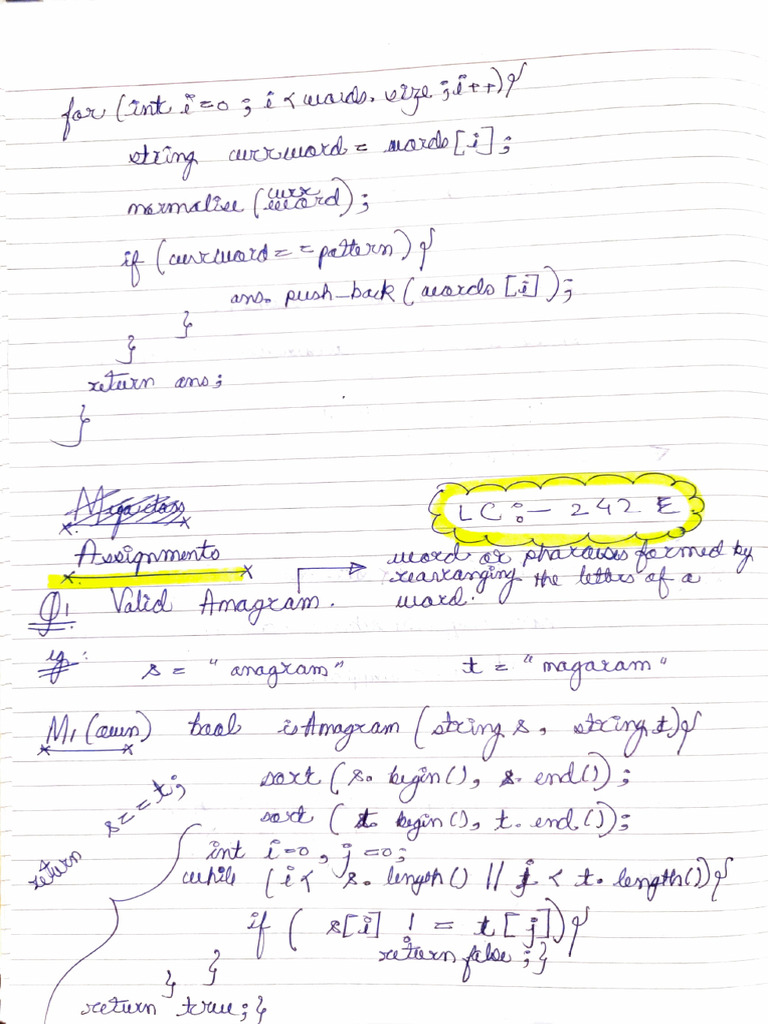 for (int i=0 ; i < words. size ; i++){
string currword = words[i];
normalise (currword);
if (currword == pattern) {
ans. push_back (words [i]);
}
}
return ans;
}
LC :- 242 E
Assignments
word or pharases formed by
rearranging the letters of a
word.
Q1 Valid Anagram.
eg: s = "anagram" t = "nagaram"
M1 (own) bool isAnagram (string s, string t){
sort (s. begin(), s. end());
sort (t. begin(), t. end());
return s==t;
int i=0, j=0;
while (i < s. length() || j < t. length()){
if ( s[i] != t[j]){
return false ; }
}
}
return true; }